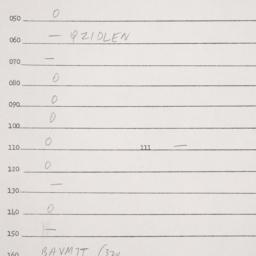 050 0
060 — QZIOLEN
070 —
080 0
090 0
100 0
110 0 111 —
120 0
130 —
140 0
150 —
160